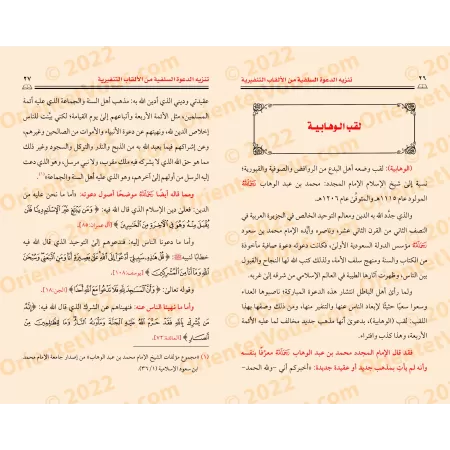 ٢٦
تنزيه الدعوة السلفية من الألقاب التنفيرية
لقب الوهابية
(الوهابية): لقب وضعه أهل البدع من الروافض والصوفية والقبورية؛
نسبة إلى شيخ الإسلام الإمام المجدد: محمد بن عبد الوهاب
المولود عام ١١١٥هـ والمتوفى عام ١٢٠٦هـ
والذي جدَّد الله به الدين ومعالم التوحيد الخالص في الجزيرة العربية في
النصف الثاني من القرن الثاني عشر وناصره وأيده الإمام محمد بن سعود
مؤسس الدولة السعودية الأولى، فكانت دعوته دعوة صافية مأخوذة
من الكتاب والسنة ومنهج سلف الأمة، ولذلك كتب الله لها النجاح والقبول
بين الناس، وظهرت آثارها الطيبة في العالم الإسلامي من شرقه إلى غربه.
ولما رأى أهل الباطل انتشار هذه الدعوة المباركة؛ ناصبوها العداء
وسعوا سعيًا حثيثًا لإبعاد الناس عنها والتنفير منها، ومن ذلك وصفها بهذا
اللقب: (الوهابية)، بدعوى أنها مذهب جديد مخالف لما عليه الأئمة
الأربعة، وهذا كذب وافتراء.
فقد قال الإمام المجدد محمد بن عبد الوهاب معرِّفًا بنفسه
وأنه لم يأت بمذهب جديد أو عقيدة جديدة: «أخبركم أني -ولله الحمد-
تنزيه الدعوة السلفية من الألقاب التنفيرية
٢٧
عقيدتي وديني الذي أدين الله به: مذهب أهل السنة والجماعة الذي عليه أئمة
المسلمين، مثل الأئمة الأربعة وأتباعهم إلى يوم القيامة؛ لكني بيَّنت للناس
إخلاص الدين لله، ونهيتهم عن دعوة الأنبياء والأموات من الصالحين وغيرهم،
وعن إشراكهم فيما يعبد الله به من الذبح والنذر والتوكل والسجود وغير ذلك
مما هو حق الله الذي لا يشركه فيه ملك مقرب، ولا نبي مرسل، وهو الذي دعت
إليه الرسل من أولهم إلى آخرهم، وهو الذي عليه أهل السنة والجماعة»(١).
ومما قاله أيضًا موضحًا أصول دعوته: «أما ما نحن عليه من
الدين: فعلى دين الإسلام الذي قال الله فيه: ﴿وَمَن يَبْتَغِ غَيْرَ الْإِسْلَامِ دِينًا فَلَن
يُقْبَلَ مِنْهُ وَهُوَ فِي الْآخِرَةِ مِنَ الْخَاسِرِينَ﴾ [آل عمران: ٨٥].
وأما ما دعونا الناس إليه: فندعوهم إلى التوحيد الذي قال الله فيه
خطابًا لنبيه ﷺ: ﴿قُلْ هَٰذِهِ سَبِيلِي أَدْعُو إِلَى اللَّهِ عَلَىٰ بَصِيرَةٍ أَنَا وَمَنِ اتَّبَعَنِي وَسُبْحَانَ
اللَّهِ وَمَا أَنَا مِنَ الْمُشْرِكِينَ﴾ [يوسف: ١٠٨].
وقوله تعالى: ﴿وَأَنَّ الْمَسَاجِدَ لِلَّهِ فَلَا تَدْعُوا مَعَ اللَّهِ أَحَدًا﴾ [الجن: ١٨].
وأما ما نهينا الناس عنه: فنهيناهم عن الشرك الذي قال الله فيه: ﴿إِنَّهُ
مَن يُشْرِكْ بِاللَّهِ فَقَدْ حَرَّمَ اللَّهُ عَلَيْهِ الْجَنَّةَ وَمَأْوَاهُ النَّارُ وَمَا لِلظَّالِمِينَ مِنْ
أَنصَارٍ﴾ [المائدة: ٧٢].
(١) «مجموع مؤلفات الشيخ الإمام محمد بن عبد الوهاب» من إصدار جامعة الإمام محمد
ابن سعود الإسلامية (٣٦/١)